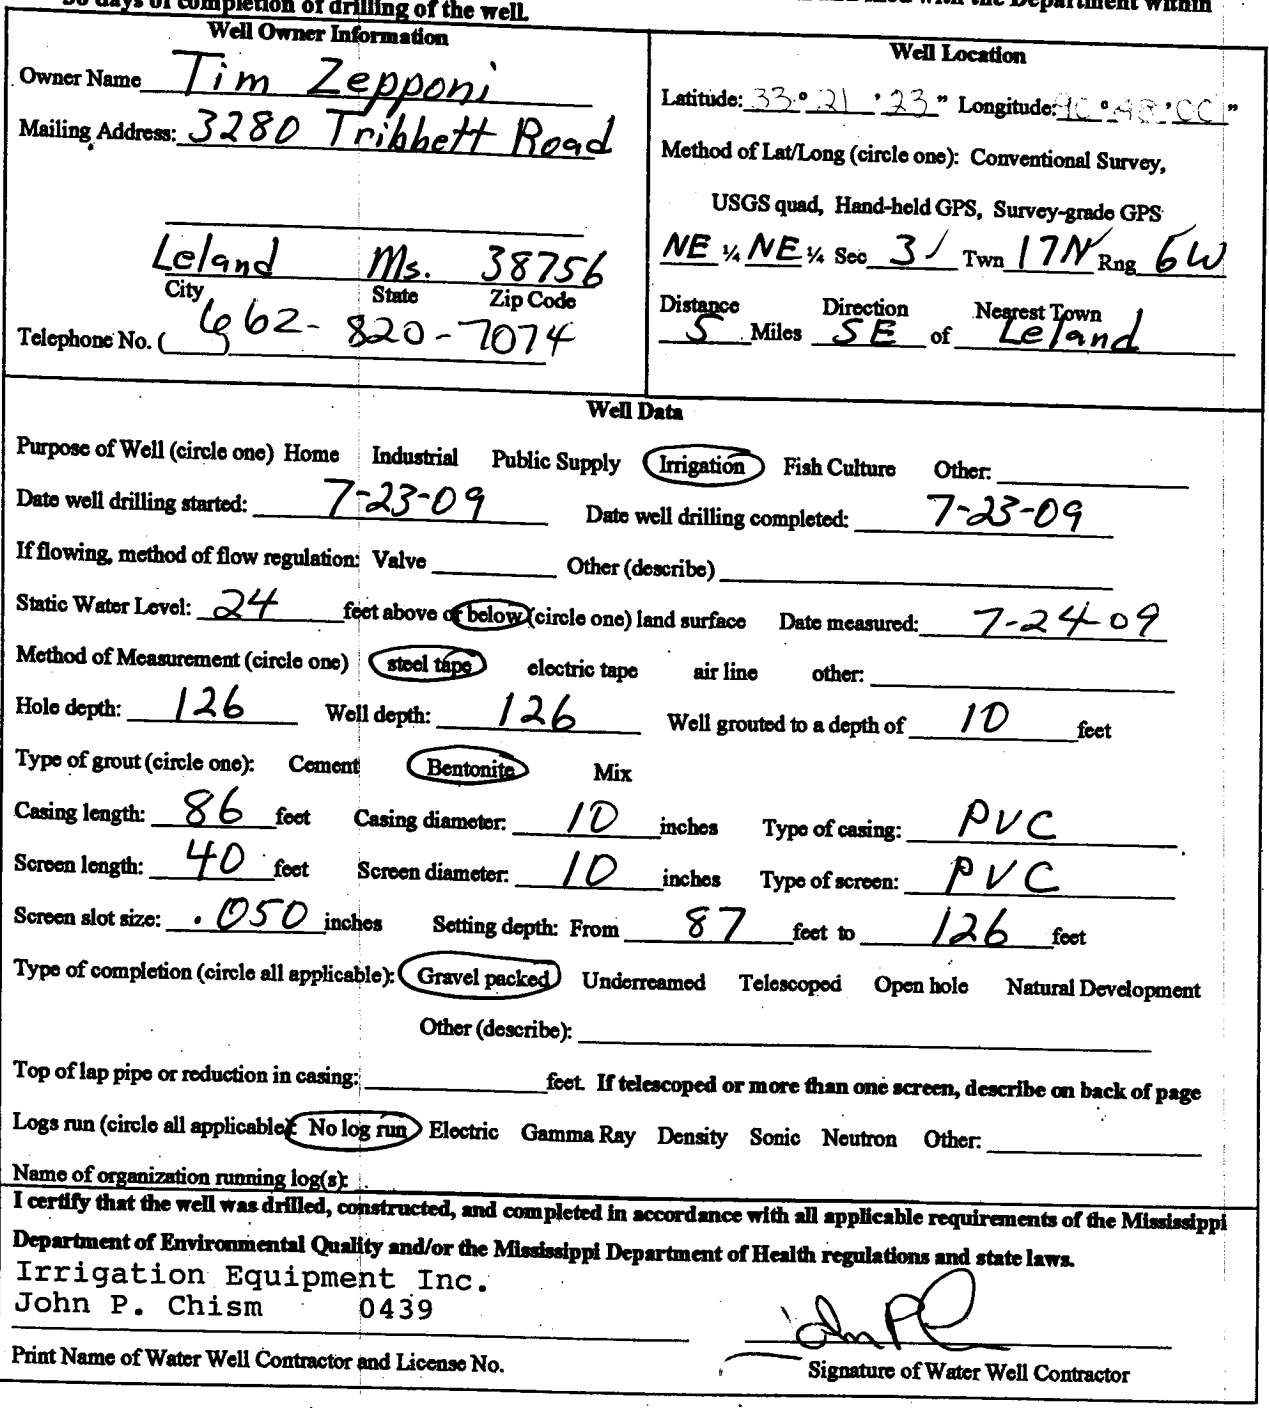 days of completion of drilling of the well.
with the Department within
Well Owner Information
Owner Name Tim Zepponi
Mailing Address: 3280 Tribbett Road
Leland Ms. 38756
City State Zip Code
Telephone No. ( ) 662-820-7074
Well Location
Latitude: 33° 21 ' 23" Longitude: 90° 48 ' 00 "
Method of Lat/Long (circle one): Conventional Survey,
USGS quad, Hand-held GPS, Survey-grade GPS
NE ¼ NE ¼ Sec 31 Twn 17N Rng 6W
Distance Direction Nearest Town
5 Miles SE of Leland
Well Data
Purpose of Well (circle one) Home Industrial Public Supply Irrigation Fish Culture Other:
Date well drilling started: 7-23-09 Date well drilling completed: 7-23-09
If flowing, method of flow regulation: Valve Other (describe)
Static Water Level: 24 feet above or below (circle one) land surface Date measured: 7-24-09
Method of Measurement (circle one) steel tape electric tape air line other:
Hole depth: 126 Well depth: 126 Well grouted to a depth of 10 feet
Type of grout (circle one): Cement Bentonite Mix
Casing length: 86 feet Casing diameter: 10 inches Type of casing: PVC
Screen length: 40 feet Screen diameter: 10 inches Type of screen: PVC
Screen slot size: .050 inches Setting depth: From 87 feet to 126 feet
Type of completion (circle all applicable): Gravel packed Underreamed Telescoped Open hole Natural Development
Other (describe):
Top of lap pipe or reduction in casing: feet. If telescoped or more than one screen, describe on back of page
Logs run (circle all applicable): No log run Electric Gamma Ray Density Sonic Neutron Other:
Name of organization running log(s):
I certify that the well was drilled, constructed, and completed in accordance with all applicable requirements of the Mississippi
Department of Environmental Quality and/or the Mississippi Department of Health regulations and state laws.
Irrigation Equipment Inc.
John P. Chism 0439
Print Name of Water Well Contractor and License No.
Signature of Water Well Contractor